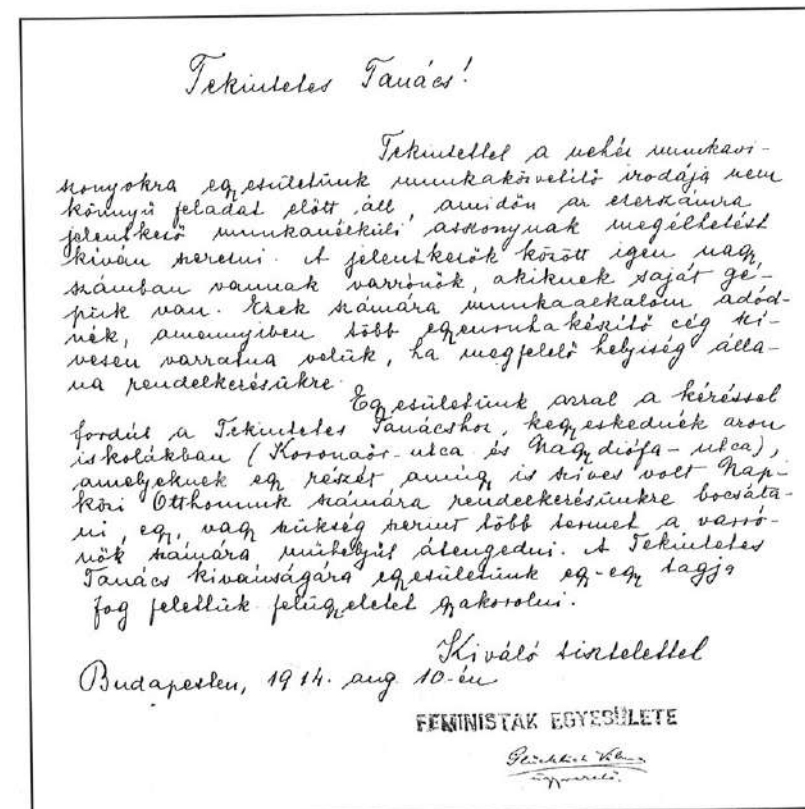 Tekintetes Tanács!
Tekintettel a nehéz munkavi-
szonyokra egyesületünk munkaközvetítő irodája nem
könnyű feladat előtt áll, amidőn az ezerszámra
jelentkező munkanélküli asszonynak megélhetést
kíván szerezni. A jelentkezők között igen nagy
számban vannak varrónők, akiknek saját gé-
pük van. Ezek számára munkaalkalom adód-
nék, amennyiben több egyenruhakészítő cég szí-
vesen varratna velük, ha megfelelő helyiség álla-
na rendelkezésükre.
Egyesületünk azzal a kéréssel
fordúl a Tekintetes Tanácshoz, kegyeskednék azon
iskolákban (Koronaőr-utca és Nagydiófa-utca),
amelyeknek egy részét amúgy is szíves volt Nap-
közi Otthonunk számára rendelkezésünkre bocsáta-
ni, egy, vagy szükség szerint több termet a varró-
nők számára műhelyül átengedni. A Tekintetes
Tanács kivánságára egyesületünk egy-egy tagja
fog felettük felügyeletet gyakorolni.
Kiváló tisztelettel
Budapesten, 1914. aug. 10-én
FEMINISTÁK EGYESÜLETE
Glücklich Vilma
ügyvezető.